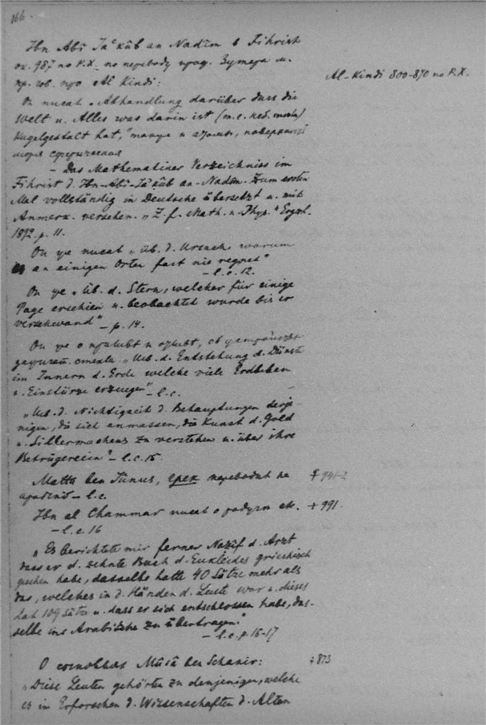 166
Ibn Abî Ja'kûb an Nadîm в Fihrist
ок. 987 по Р.Х. по переводу проф. Зутера и.
пр. гов. про Al Kindi:
Al-Kindi 800-870 по Р.Х.
Он писал „Abhandlung darüber dass die
Welt u. Alles was darin ist
Kugelgestalt hat,"
сферическая
— Das Mathematiker Verzeichniss im
Fihrist d. Ibn-Abî-Ja'kûb an-Nadîm. Zum ersten
Mal vollständig in Deutsche übersetzt u. mit
Anmerk. versehen. „Z. f. Math. u. Phys." Ergzl.
1892 p. 11.
Он же писал „üb. d. Ursach warum
es an einigen Orten fast nie regnet"
— l.c. 12.
Он же „Üb. d. Stern, welcher für einige
Tage erschien u. beobachtet wurde bis er
verschwand" — p. 14.
Он же о
„Ueb. d. Entstehung d. Dünste
im Innern d. Erde welche viele Erdbeben
u. Einstürze erzeugen" — l.c.
„Ueb. d. Nichtigkeit d. Behauptungen derje-
nigen, die sich anmassen, die Kunst d. Gold
u. Silbermachens zu verstehen u. über ihre
Betrügereien" — l.c. 15.
Matta ben Junus, грек переводил на
арабский — l.c.
Ibn al Chammar писал о радуге etc. + 991.
— l.c. 16
„Es berichtete mir ferner Nazîf d. Arzt
dass er d. zehnte Buch d. Eukleides griechisch
gesehen habe, dasselbe hatte 40 Sätze mehr als
das, welches in d. Händen d. Leute war u. dieses
hat 109 Sätze u. dass er sich entschlossen habe, das-
selbe ins Arabische zu übertragen."
— l.c. p. 16-17
О сыновьях Mûsâ ben Schakir: + 873
„Diese Leuten gehörten zu denjenigen, welche
es in Erforschen d. Wissenschaften d. Alten